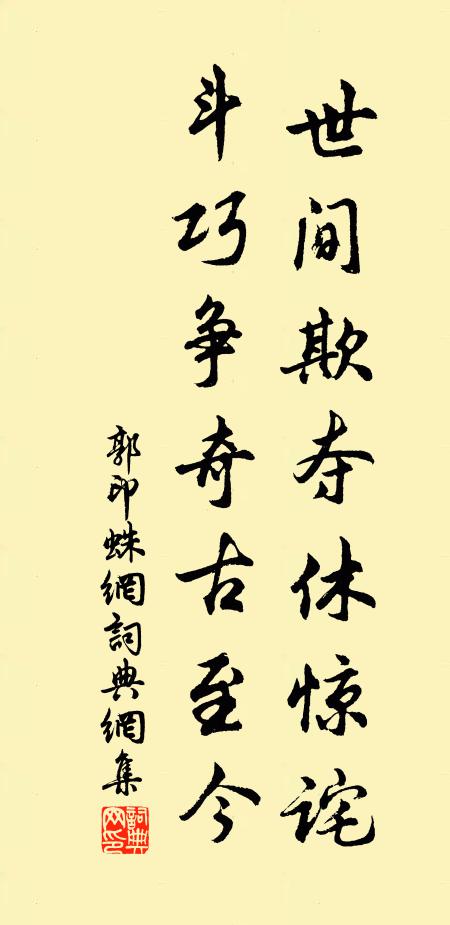 世间欺夺休惊诧
斗巧争奇古至今
郭印蛛網詞典網集
詞典網印